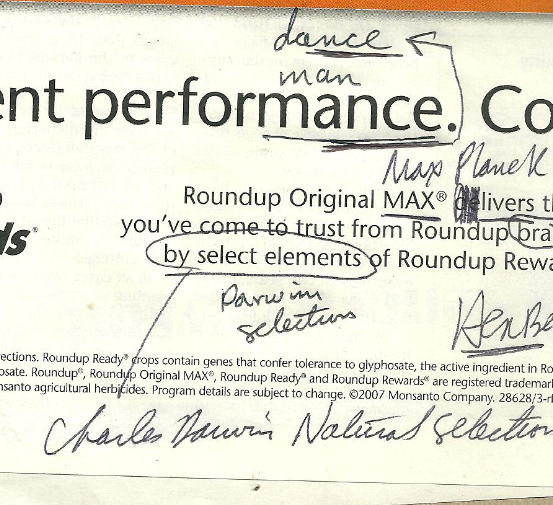 dance
man
ent performance. Co
Max Planck
Roundup Original MAX® delivers t
ds®
you've come to trust from Roundup bra
by select elements of Roundup Rewa
Darwin
selection
HenBe
ections. Roundup Ready® crops contain genes that confer tolerance to glyphosate, the active ingredient in Ro
osate. Roundup®, Roundup Original MAX®, Roundup Ready® and Roundup Rewards® are registered trademar
nsanto agricultural herbicides. Program details are subject to change. ©2007 Monsanto Company. 28628/3-r
Charles Darwin Natural selection